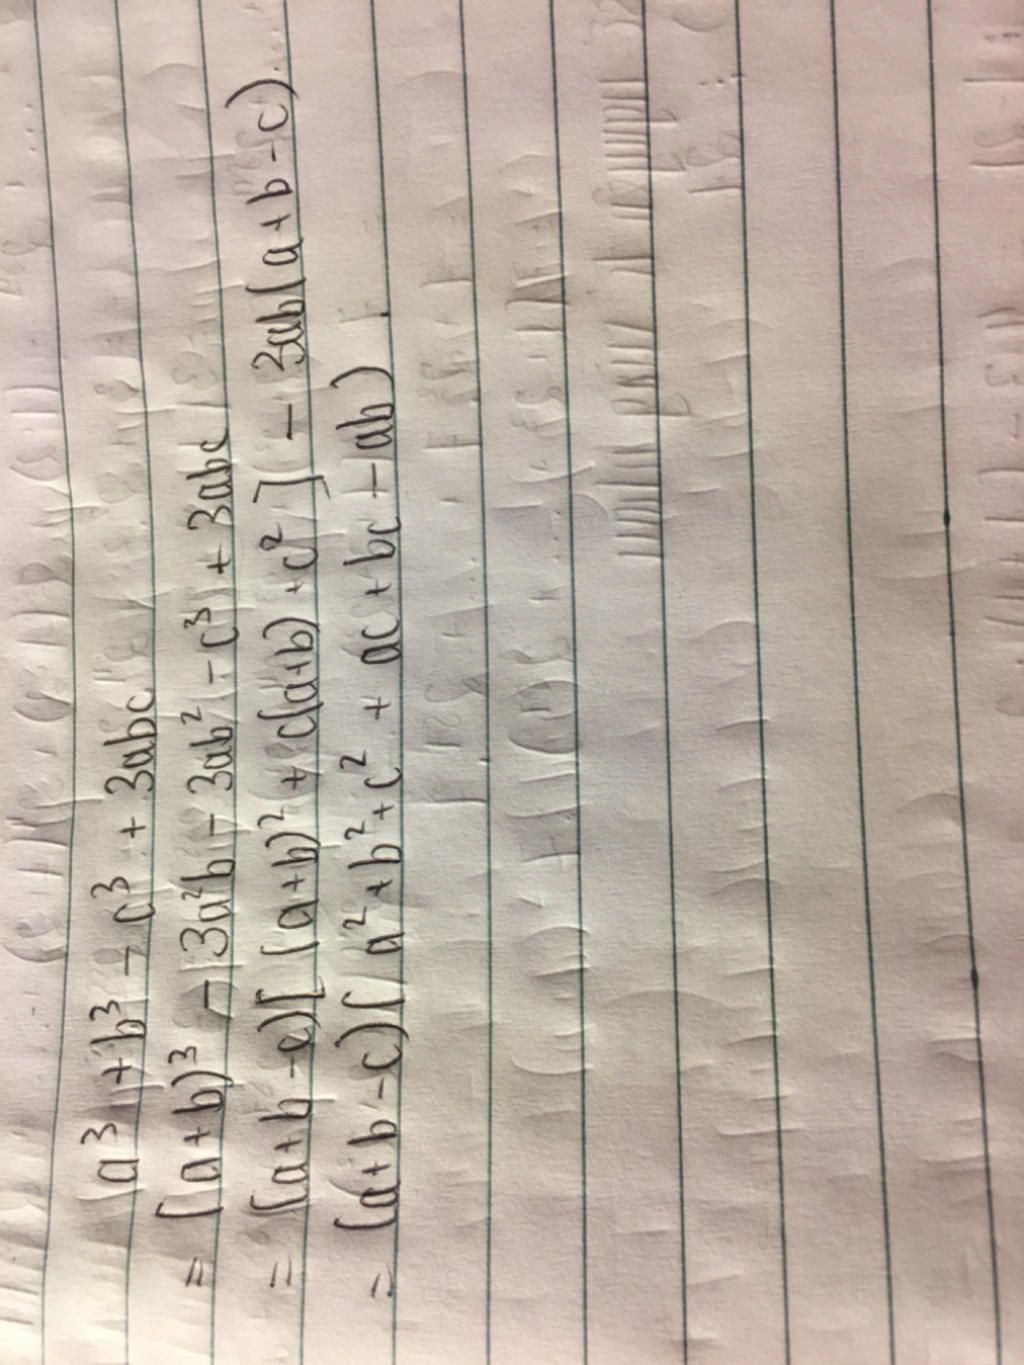 a³ + b³ - c³ + 3abc
= (a+b)³ - 3a²b - 3ab² - c³ + 3abc
= (a+b-c)[(a+b)² + c(a+b) + c²] - 3ab(a+b-c)
= (a+b-c)(a²+b²+c² + ac + bc - ab)